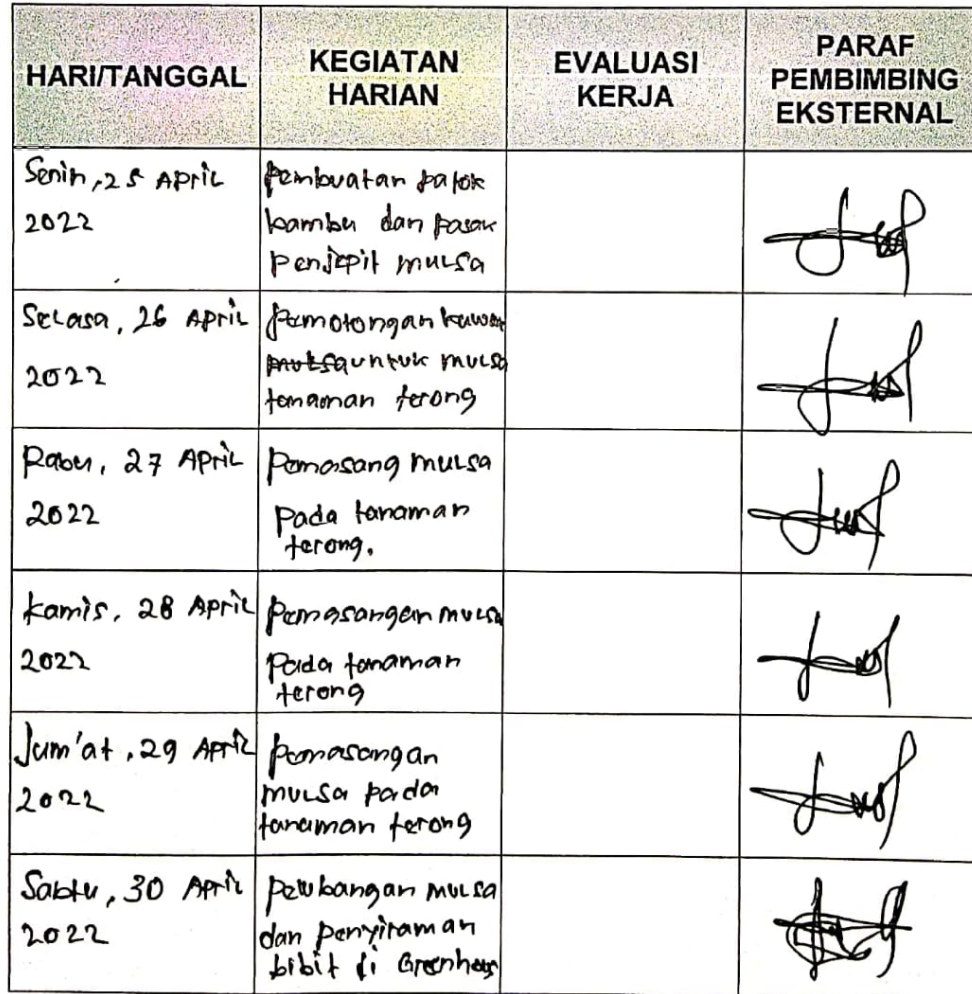 HARI/TANGGAL
KEGIATAN
HARIAN
EVALUASI
KERJA
PARAF
PEMBIMBING
EKSTERNAL
Senin, 25 April
2022
Pembuatan patok
bambu dan pasak
Penjepit mulsa
Selasa, 26 April
2022
Pemotongan kawat
mulsa untuk mulsa
tanaman terong
Rabu, 27 April
2022
Pemasang mulsa
Pada tanaman
terong.
Kamis, 28 April
2022
Pemasangan mulsa
Pada tanaman
terong
Jum'at, 29 April
2022
Pemasangan
mulsa pada
tanaman terong
Sabtu, 30 April
2022
Pelubangan mulsa
dan penyiraman
bibit di